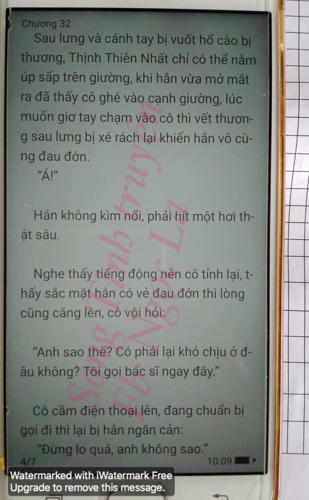 Chương 32
Sau lưng và cánh tay bị vuốt hổ cào bị
thương, Thịnh Thiên Nhất chỉ có thể nằm
úp sấp trên giường, khi hắn vừa mở mắt
ra đã thấy cô ghé vào cạnh giường, lúc
muốn giơ tay chạm vào cô thì vết thươn-
g sau lưng bị xé rách lại khiến hắn vô cù-
ng đau đớn.
"Á!"
Hắn không kìm nổi, phải hít một hơi th-
ật sâu.
Nghe thấy tiếng động nên cô tỉnh lại, t-
hấy sắc mặt hắn có vẻ đau đớn thì lòng
cũng căng lên, cô vội hỏi:
"Anh sao thế? Có phải lại khó chịu ở đ-
âu không? Tôi gọi bác sĩ ngay đây."
Cô cầm điện thoại lên, đang chuẩn bị
gọi đi thì lại bị hắn ngăn cản:
"Đừng lo quá, anh không sao."
4/7 10:09
Watermarked with iWatermark Free
Upgrade to remove this message.